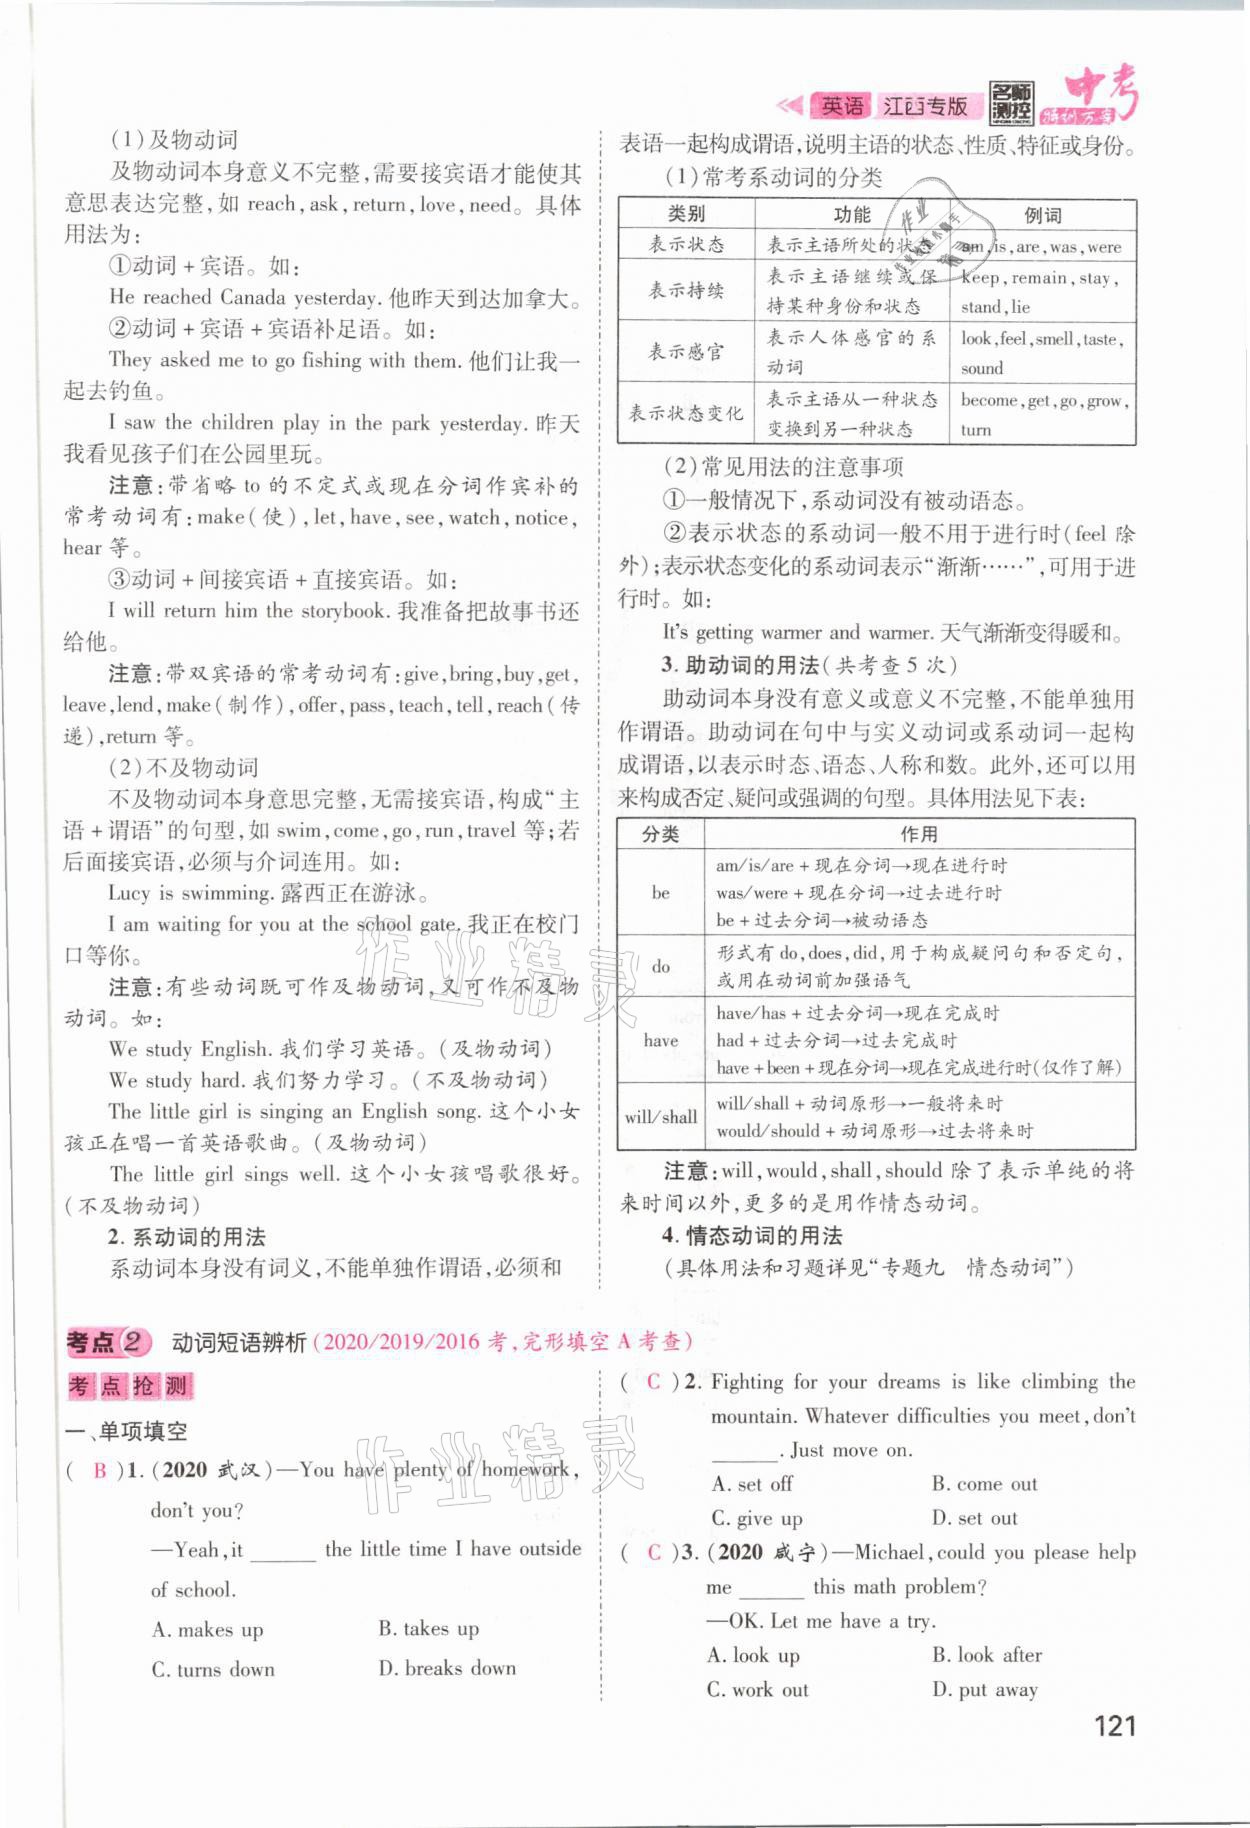 英语 江西专版 名师测控 中考
特训方案
(1)及物动词
及物动词本身意义不完整,需要接宾语才能使其
意思表达完整,如 reach,ask,return,love,need。具体
用法为:
①动词+宾语。如:
He reached Canada yesterday. 他昨天到达加拿大。
②动词+宾语+宾语补足语。如:
They asked me to go fishing with them. 他们让我一
起去钓鱼。
I saw the children play in the park yesterday. 昨天
我看见孩子们在公园里玩。
注意:带省略 to 的不定式或现在分词作宾补的
常考动词有:make(使),let,have,see,watch,notice,
hear 等。
③动词+间接宾语+直接宾语。如:
I will return him the storybook. 我准备把故事书还
给他。
注意:带双宾语的常考动词有:give,bring,buy,get,
leave,lend,make(制作),offer,pass,teach,tell,reach(传
递),return 等。
(2)不及物动词
不及物动词本身意思完整,无需接宾语,构成“主
语+谓语”的句型,如 swim,come,go,run,travel 等;若
后面接宾语,必须与介词连用。如:
Lucy is swimming. 露西正在游泳。
I am waiting for you at the school gate. 我正在校门
口等你。
注意:有些动词既可作及物动词,又可作不及物
动词。如:
We study English. 我们学习英语。(及物动词)
We study hard. 我们努力学习。(不及物动词)
The little girl is singing an English song. 这个小女
孩正在唱一首英语歌曲。(及物动词)
The little girl sings well. 这个小女孩唱歌很好。
(不及物动词)
2. 系动词的用法
系动词本身没有词义,不能单独作谓语,必须和
表语一起构成谓语,说明主语的状态、性质、特征或身份。
(1)常考系动词的分类
类别 功能 例词
表示状态 表示主语所处的状态 am,is,are,was,were
表示持续 表示主语继续或保持某种身份和状态 keep,remain,stay,stand,lie
表示感官 表示人体感官的系动词 look,feel,smell,taste,sound
表示状态变化 表示主语从一种状态变换到另一种状态 become,get,go,grow,turn
(2)常见用法的注意事项
①一般情况下,系动词没有被动语态。
②表示状态的系动词一般不用于进行时(feel 除
外);表示状态变化的系动词表示“渐渐……”,可用于进
行时。如:
It's getting warmer and warmer. 天气渐渐变得暖和。
3. 助动词的用法(共考查5次)
助动词本身没有意义或意义不完整,不能单独用
作谓语。助动词在句中与实义动词或系动词一起构
成谓语,以表示时态、语态、人称和数。此外,还可以用
来构成否定、疑问或强调的句型。具体用法见下表:
分类 作用
be
am/is/are+现在分词→现在进行时
was/were+现在分词→过去进行时
be+过去分词→被动语态
do
形式有 do,does,did,用于构成疑问句和否定句,
或用在动词前加强语气
have
have/has+过去分词→现在完成时
had+过去分词→过去完成时
have+been+现在分词→现在完成进行时(仅作了解)
will/shall
will/shall+动词原形→一般将来时
would/should+动词原形→过去将来时
注意:will,would,shall,should 除了表示单纯的将
来时间以外,更多的是用作情态动词。
4. 情态动词的用法
(具体用法和习题详见“专题九 情态动词”)
考点2 动词短语辨析(2020/2019/2016 考,完形填空 A 考查)
考点抢测
一、单项填空
( B )1. (2020 武汉)—You have plenty of homework,
don't you?
—Yeah,it ______ the little time I have outside
of school.
A. makes up B. takes up
C. turns down D. breaks down
( C )2. Fighting for your dreams is like climbing the
mountain. Whatever difficulties you meet,don't
______. Just move on.
A. set off B. come out
C. give up D. set out
( C )3. (2020 咸宁)—Michael,could you please help
me ______ this math problem?
—OK. Let me have a try.
A. look up B. look after
C. work out D. put away
121
作业精灵
作业精灵